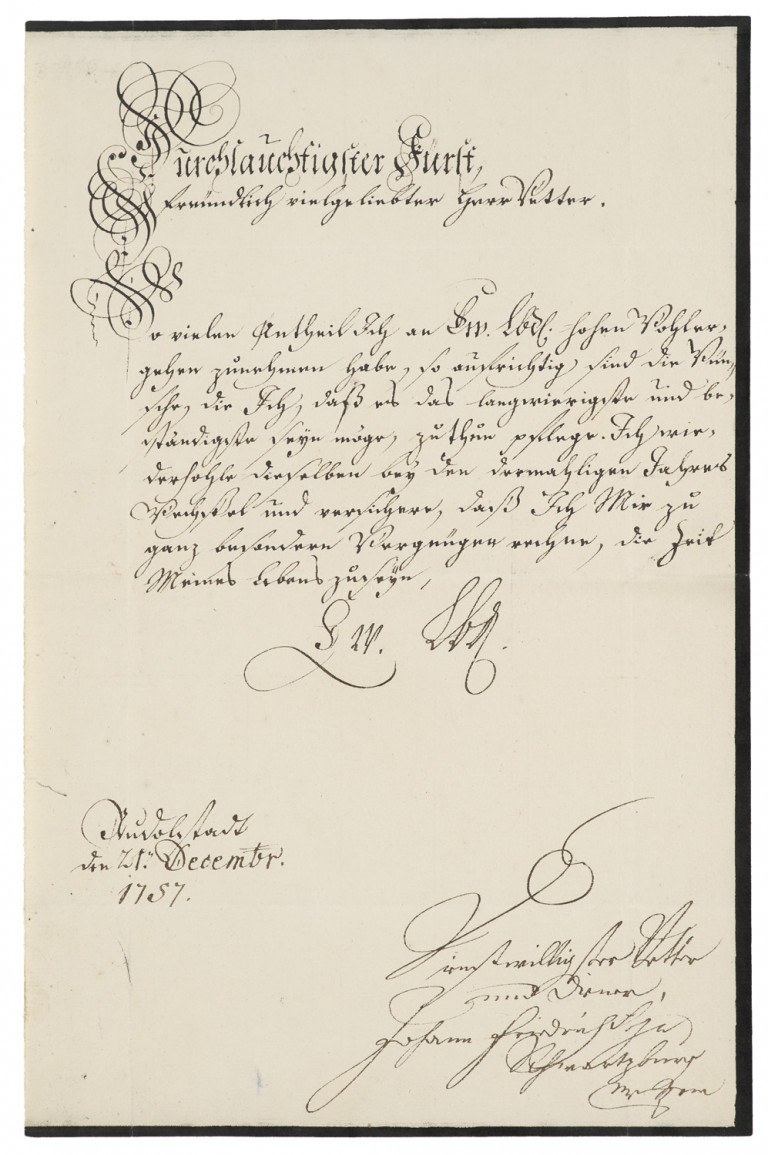 Durchlauchtigster Fürst,
freündlich vielgeliebter Herr Vetter.
So vielen Antheil Ich an Ew. Lbd. hohen Wohler-
gehen zunehmen habe, so aufrichtig sind die Wün-
sche, die Ich, daß es das langwierigste und be-
ständigste seyn möge, zuthun pflege. Ich wie-
derhohle dieselben bey den dermahligen Jahres
Wechsel und versichere, daß Ich Mir zu
ganz besondern Vergnügen rechne, die Zeit
Meines Lebens zuseyn,
Ew. Lbd.
Rudolstadt
den 21. Decembr.
1757.
Dienstwilligster Vetter
und Diener,
Johann Friedrich
Schwartzburg